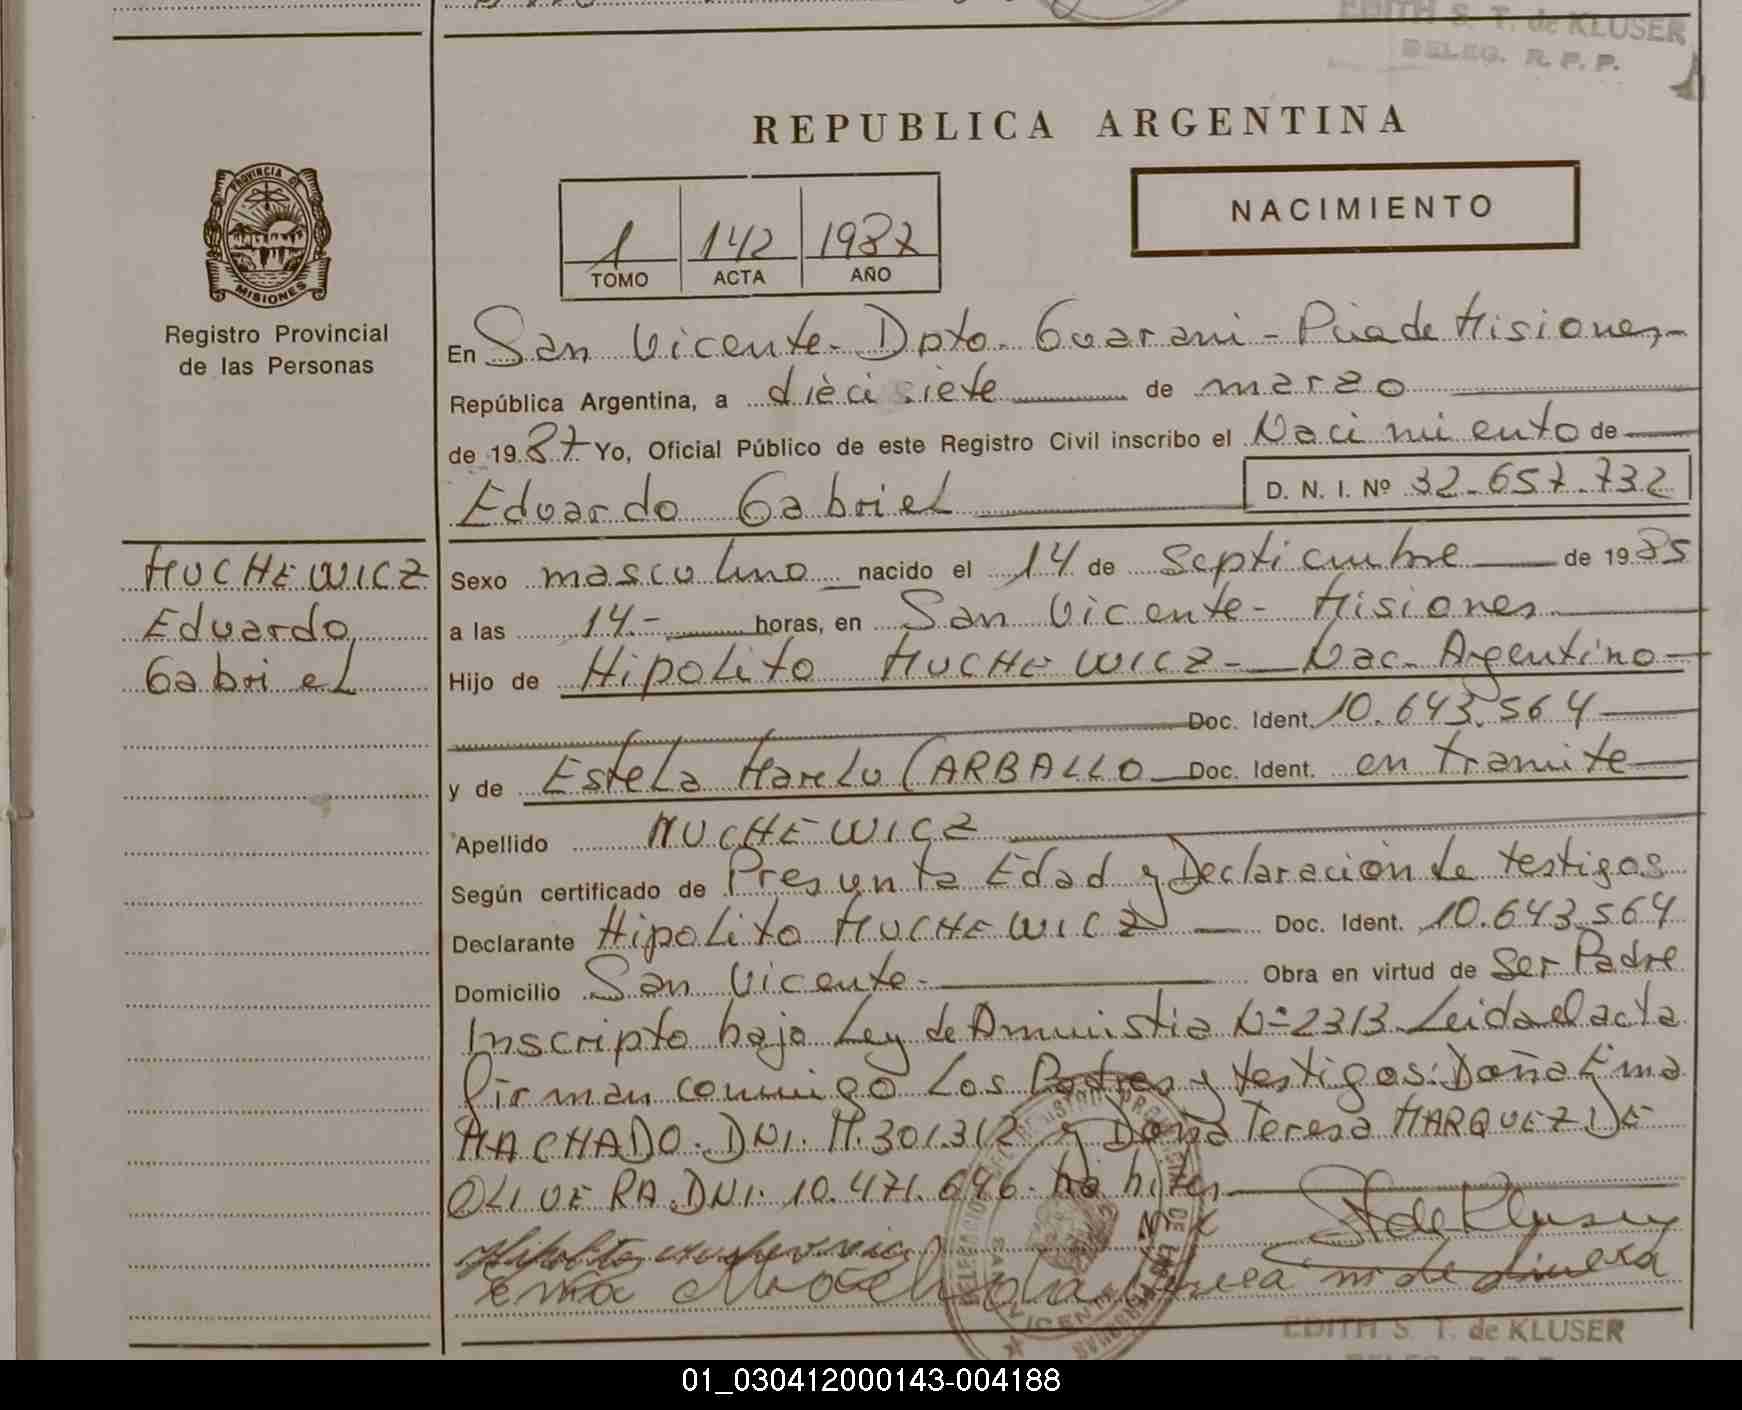 EDITH S. T. de KLUSER
DELEG. R. P. P.
REPUBLICA ARGENTINA
NACIMIENTO
1 142 1987
TOMO ACTA AÑO
PROVINCIA DE
MISIONES
Registro Provincial
de las Personas
En San Vicente - Dpto. Guarani - Pcia de Misiones,-
República Argentina, a diecisiete de marzo
de 1987 Yo, Oficial Público de este Registro Civil inscribo el Nacimiento de
Eduardo Gabriel D. N. I. Nº 32.657.732
MUCHEWICZ
Eduardo
Gabriel
Sexo masculino nacido el 14 de Septiembre de 1985
a las 14.- horas, en San Vicente - Misiones
Hijo de Hipolito MUCHEWICZ - Nac. Argentino
Doc. Ident. 10.643.564
y de Estela CARBALLO Doc. Ident. en tramite
Apellido MUCHEWICZ
Según certificado de Presunta Edad y Declaración de testigos
Declarante Hipolito MUCHEWICZ Doc. Ident. 10.643.564
Domicilio San Vicente.- Obra en virtud de Ser Padre
Inscripto bajo Ley de Amnistia Nº 2313 Leida el acta
firman conmigo Los Padres y testigos: Doña Ema
MACHADO. DNI. 301.312 y Doña Teresa MARQUEZ DE
OLIVERA. DNI. 10.471.646.
S T de Kluser
Ema de Olivera
EDITH S. T. de KLUSER
01_030412000143-004188